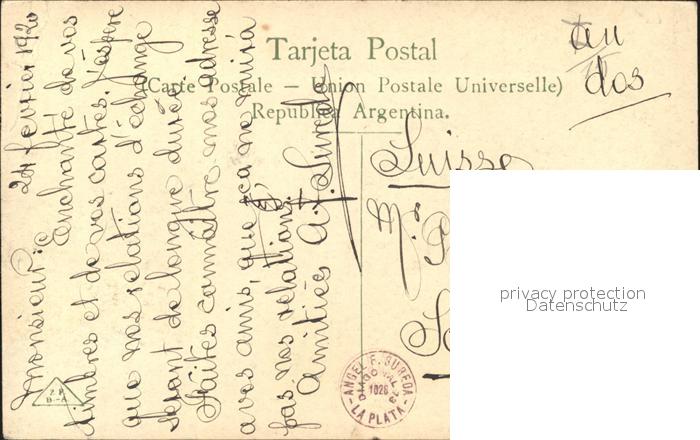 Tarjeta Postal
(Carte Postale — Union Postale Universelle)
Republica Argentina.
au
dos
24 février 1920
Monsieur:
Enchanté de vos
timbres et de vos cartes. J'espère
que nos relations d'échange
seront de longue durée.
Faites connaître mos adresse
a vos amis, que ça ne nuira
pas nos relations.
Amitiés A. F. Sureda
Suisse
Mr. P
privacy protection
Datenschutz
ANGEL F. SUREDA
1026
LA PLATA
Z. F.